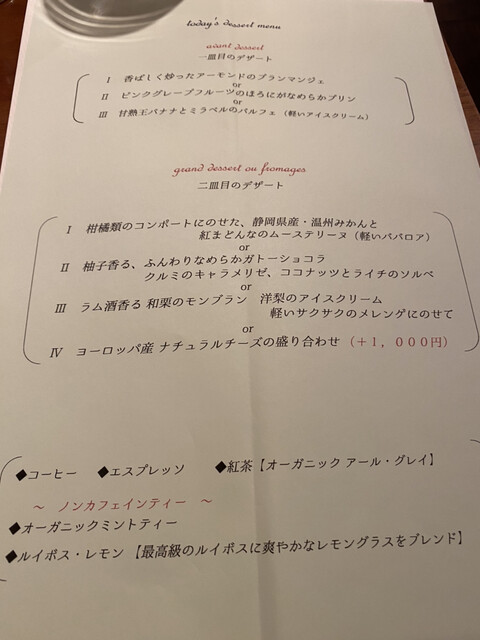 today's dessert menu
avant dessert
一皿目のデザート
Ⅰ 香ばしく炒ったアーモンドのブランマンジェ
or
Ⅱ ピンクグレープフルーツのほろにがなめらかプリン
or
Ⅲ 甘熟王バナナとミラベルのパルフェ（軽いアイスクリーム）
grand dessert ou fromages
二皿目のデザート
Ⅰ 柑橘類のコンポートにのせた、静岡県産・温州みかんと
紅まどんなのムーステリーヌ（軽いババロア）
or
Ⅱ 柚子香る、ふんわりなめらかガトーショコラ
クルミのキャラメリゼ、ココナッツとライチのソルベ
or
Ⅲ ラム酒香る 和栗のモンブラン 洋梨のアイスクリーム
軽いサクサクのメレンゲにのせて
or
Ⅳ ヨーロッパ産 ナチュラルチーズの盛り合わせ（＋１，０００円）
◆コーヒー ◆エスプレッソ ◆紅茶【オーガニック アール・グレイ】
～ ノンカフェインティー ～
◆オーガニックミントティー
◆ルイボス・レモン【最高級のルイボスに爽やかなレモングラスをブレンド】